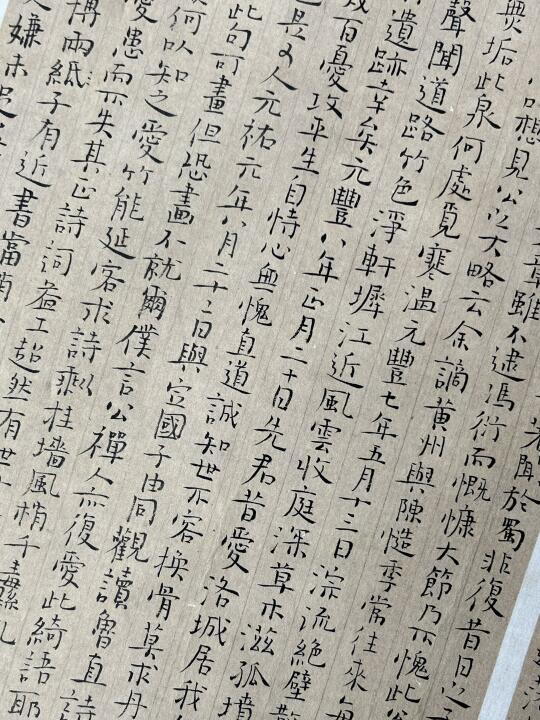 著聞於蜀非復昔日之
章雖不逮馮衍而慨慷大節乃不愧此公
想見公以大略云余謫黃州與陳慥季常往來每
無垢此泉何處覓寒溫元豐七年五月十三日淙流絕壁散
聲聞道路竹色淨軒墀江近風雲收庭深草木滋孤墳
遺跡幸矣元豐八年正月二十日先君昔愛洛城居我
百憂攻平生自恃心無愧直道誠知世不容換骨莫求丹
也是人元祐元年八月二十二日與定國子由同觀讀魯直詩
此句可畫但恐畫不就爾僕言公禪人亦復愛此綺語耶
何以知之愛竹能延客求詩剩挂墻風梢千纛亂
患而不失其正詩詞益工超然有世
博兩紙子有近書當
嫌未